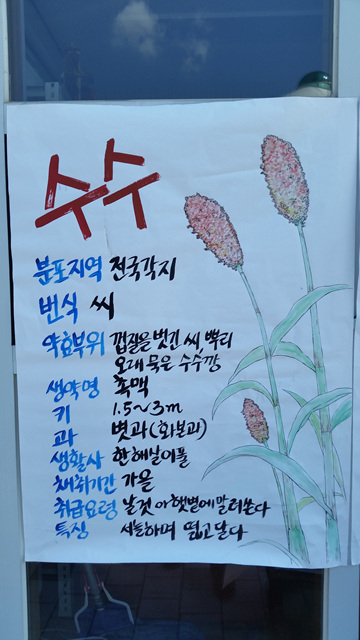 수수
분포지역 전국각지
번식 씨
약효부위 껍질을 벗긴 씨, 뿌리
오래 묵은 수수깡
생약명 촉맥
키 1.5~3m
과 볏과(화본과)
생활사 한해살이풀
채취기간 가을
취급요령 날것 아 햇볕에 말려쓴다
특징 서늘하며 떫고 달다